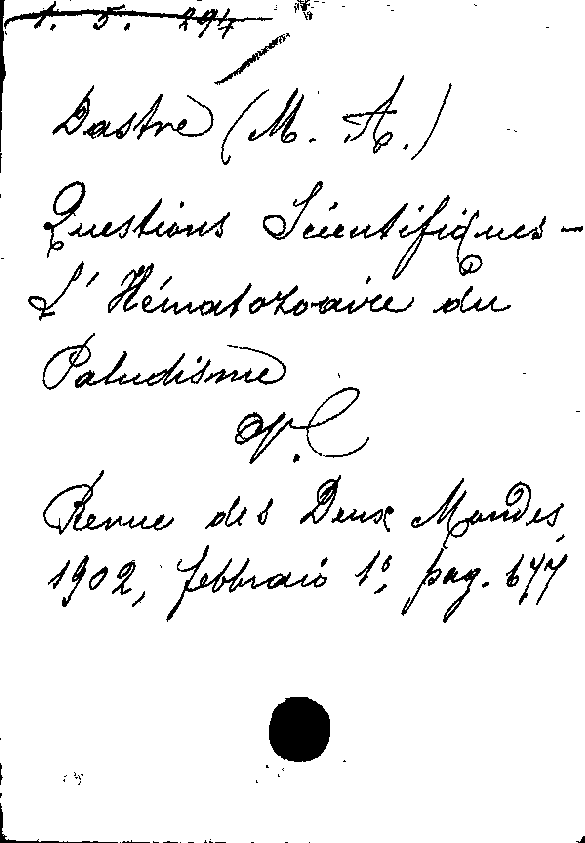 1. 5. 294
Dastre (M. A.)
Questions Scientifiques -
L' Hématozoaire du
Paludisme
V. C
Revue des Deux Mondes,
1902, febbraio 1°, pag. 677